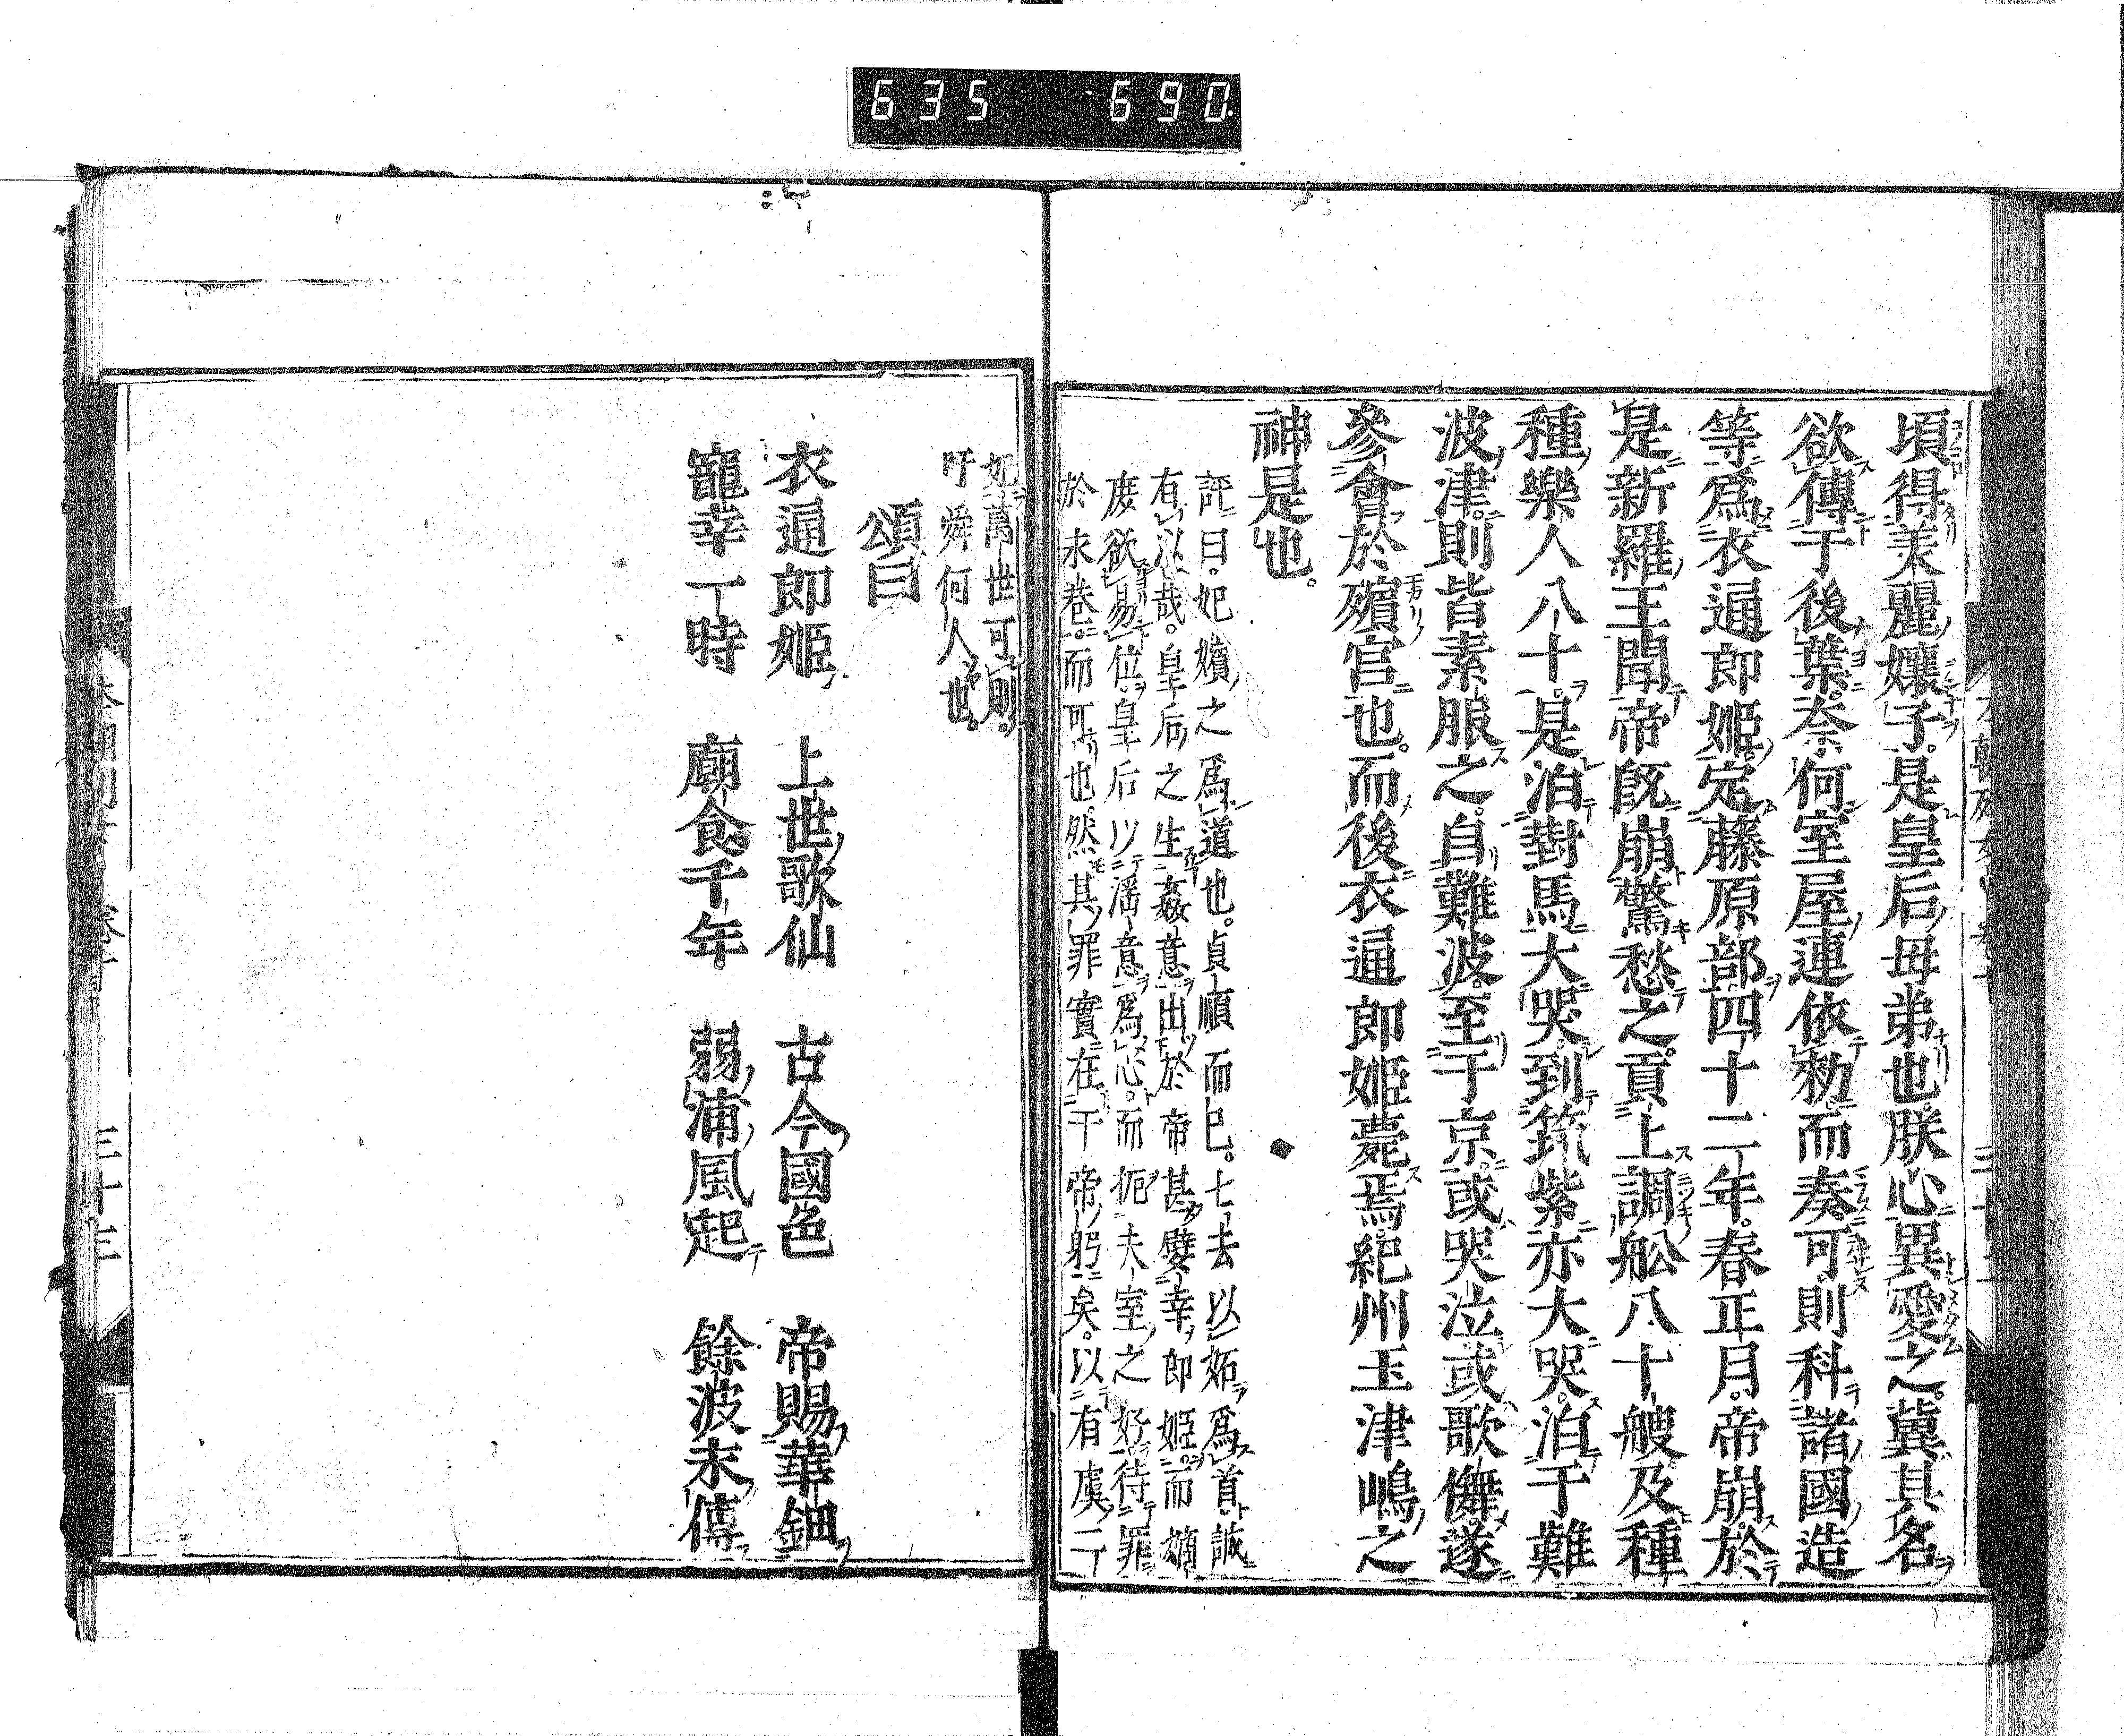 635 690
頃得美麗孃子。是皇后毋弟也。朕心異愛之。冀其名
欲傳于後葉。奈何室屋連依勑而奏可。則科諸國造
等。爲衣通郎姫。定藤原部。四十二年。春正月。帝崩。於
是新羅王聞帝旣崩。驚愁之。貢上調舩八十艘。及種
種樂人八十。是泊對馬大哭。到筑紫亦大哭。泊于難
波津。則皆素服之。自難波。至于京。或哭泣。或歌儛。遂
參會於殯宮也。而後衣通郎姫薨焉。紀州玉津嶋之
神是也。
評曰。妃嬪之爲道也。貞順而已。七去以妬爲首。誠
有以哉。皇后之生姦意。出於帝甚嬖幸郎姫。而嫡
庶欲易位。皇后以滿意爲心。而扼夫室之好待罪
於未巷。而可也。然其罪實在于帝躬矣。以有虞二
妃萬世可則。
吁舜何人也。
頌曰
衣通郎姫 上世歌仙 古今國色 帝賜華鈿
寵幸一時 廟食千年 弱浦風起 餘波末傳
三十三